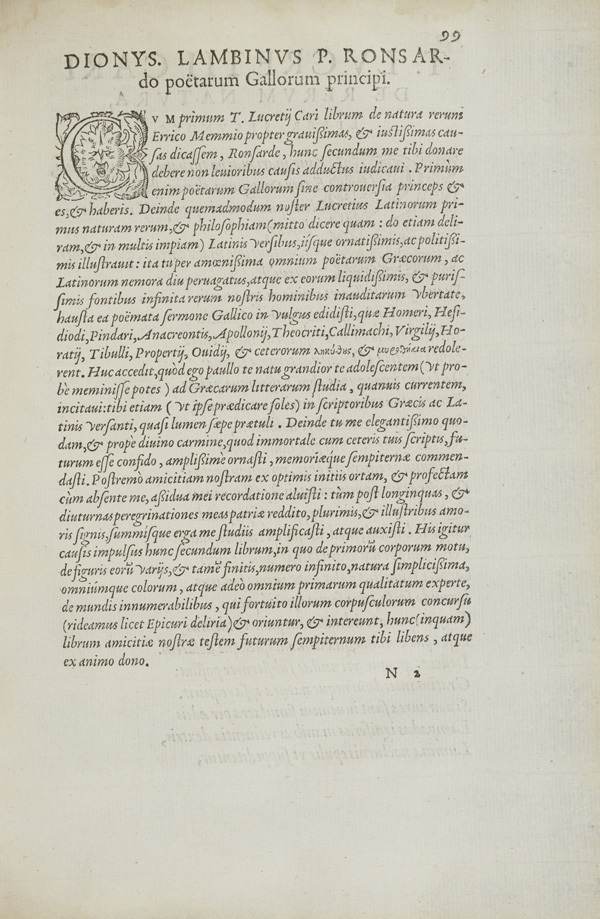 99
DIONYS. LAMBINVS P. RONSAR-
do poëtarum Gallorum principi.
CVM primum T. Lucretij Cari librum de natura rerum
Errico Memmio propter grauißimas, & iustißimas cau-
sas dicassem, Ronsarde, hunc secundum me tibi donare
debere non leuioribus causis adductus iudicaui. Primùm
enim poëtarum Gallorum sine controuersia princeps &
es, & haberis. Deinde quemadmodum noster Lucretius Latinorum pri-
mus naturam rerum, & philosophiam (mitto dicere quam: do etiam deli-
ram, & in multis impiam) Latinis versibus, iisque ornatißimis, ac politißi-
mis illustrauit: ita tu per amœnißima omnium poëtarum Græcorum, ac
Latinorum nemora diu peruagatus, atque ex eorum liquidißimis, & puris-
simis fontibus infinita rerum nostris hominibus inauditarum vbertate,
hausta ea poëmata sermone Gallico in vulgus edidisti, quæ Homeri, Hesi-
diodi, Pindari, Anacreontis, Apollonij, Theocriti, Callimachi, Virgilij, Ho-
ratij, Tibulli, Propertij, Ouidij, & ceterorum & redole-
rent. Huc accedit, quòd ego paullo te natu grandior te adolescentem (vt pro-
bè meminisse potes) ad Græcarum litterarum studia, quanuis currentem,
incitaui: tibi etiam (vt ipse prædicare soles) in scriptoribus Græcis ac La-
tinis versanti, quasi lumen sæpe prætuli. Deinde tu me elegantißimo quo-
dam, & propè diuino carmine, quod immortale cum ceteris tuis scriptis, fu-
turum esse confido, amplißimè ornasti, memoriæque sempiternæ commen-
dasti. Postremò amicitiam nostram ex optimis initiis ortam, & profectam
cùm absente me, aßidua mei recordatione aluisti: tùm post longinquas, &
diuturnas peregrinationes meas patriæ reddito, plurimis, & illustribus amo-
ris signis, summisque erga me studiis amplificasti, atque auxisti. His igitur
causis impulsus hunc secundum librum, in quo de primorũ corporum motu,
de figuris eorũ varijs, & tamẽ finitis, numero infinito, natura simplicißima,
omniúmque colorum, atque adeò omnium primarum qualitatum experte,
de mundis innumerabilibus, qui fortuito illorum corpusculorum concursu
(rideamus licet Epicuri deliria) & oriuntur, & intereunt, hunc (inquam)
librum amicitiæ nostræ testem futurum sempiternum tibi libens, atque
ex animo dono.
N 2